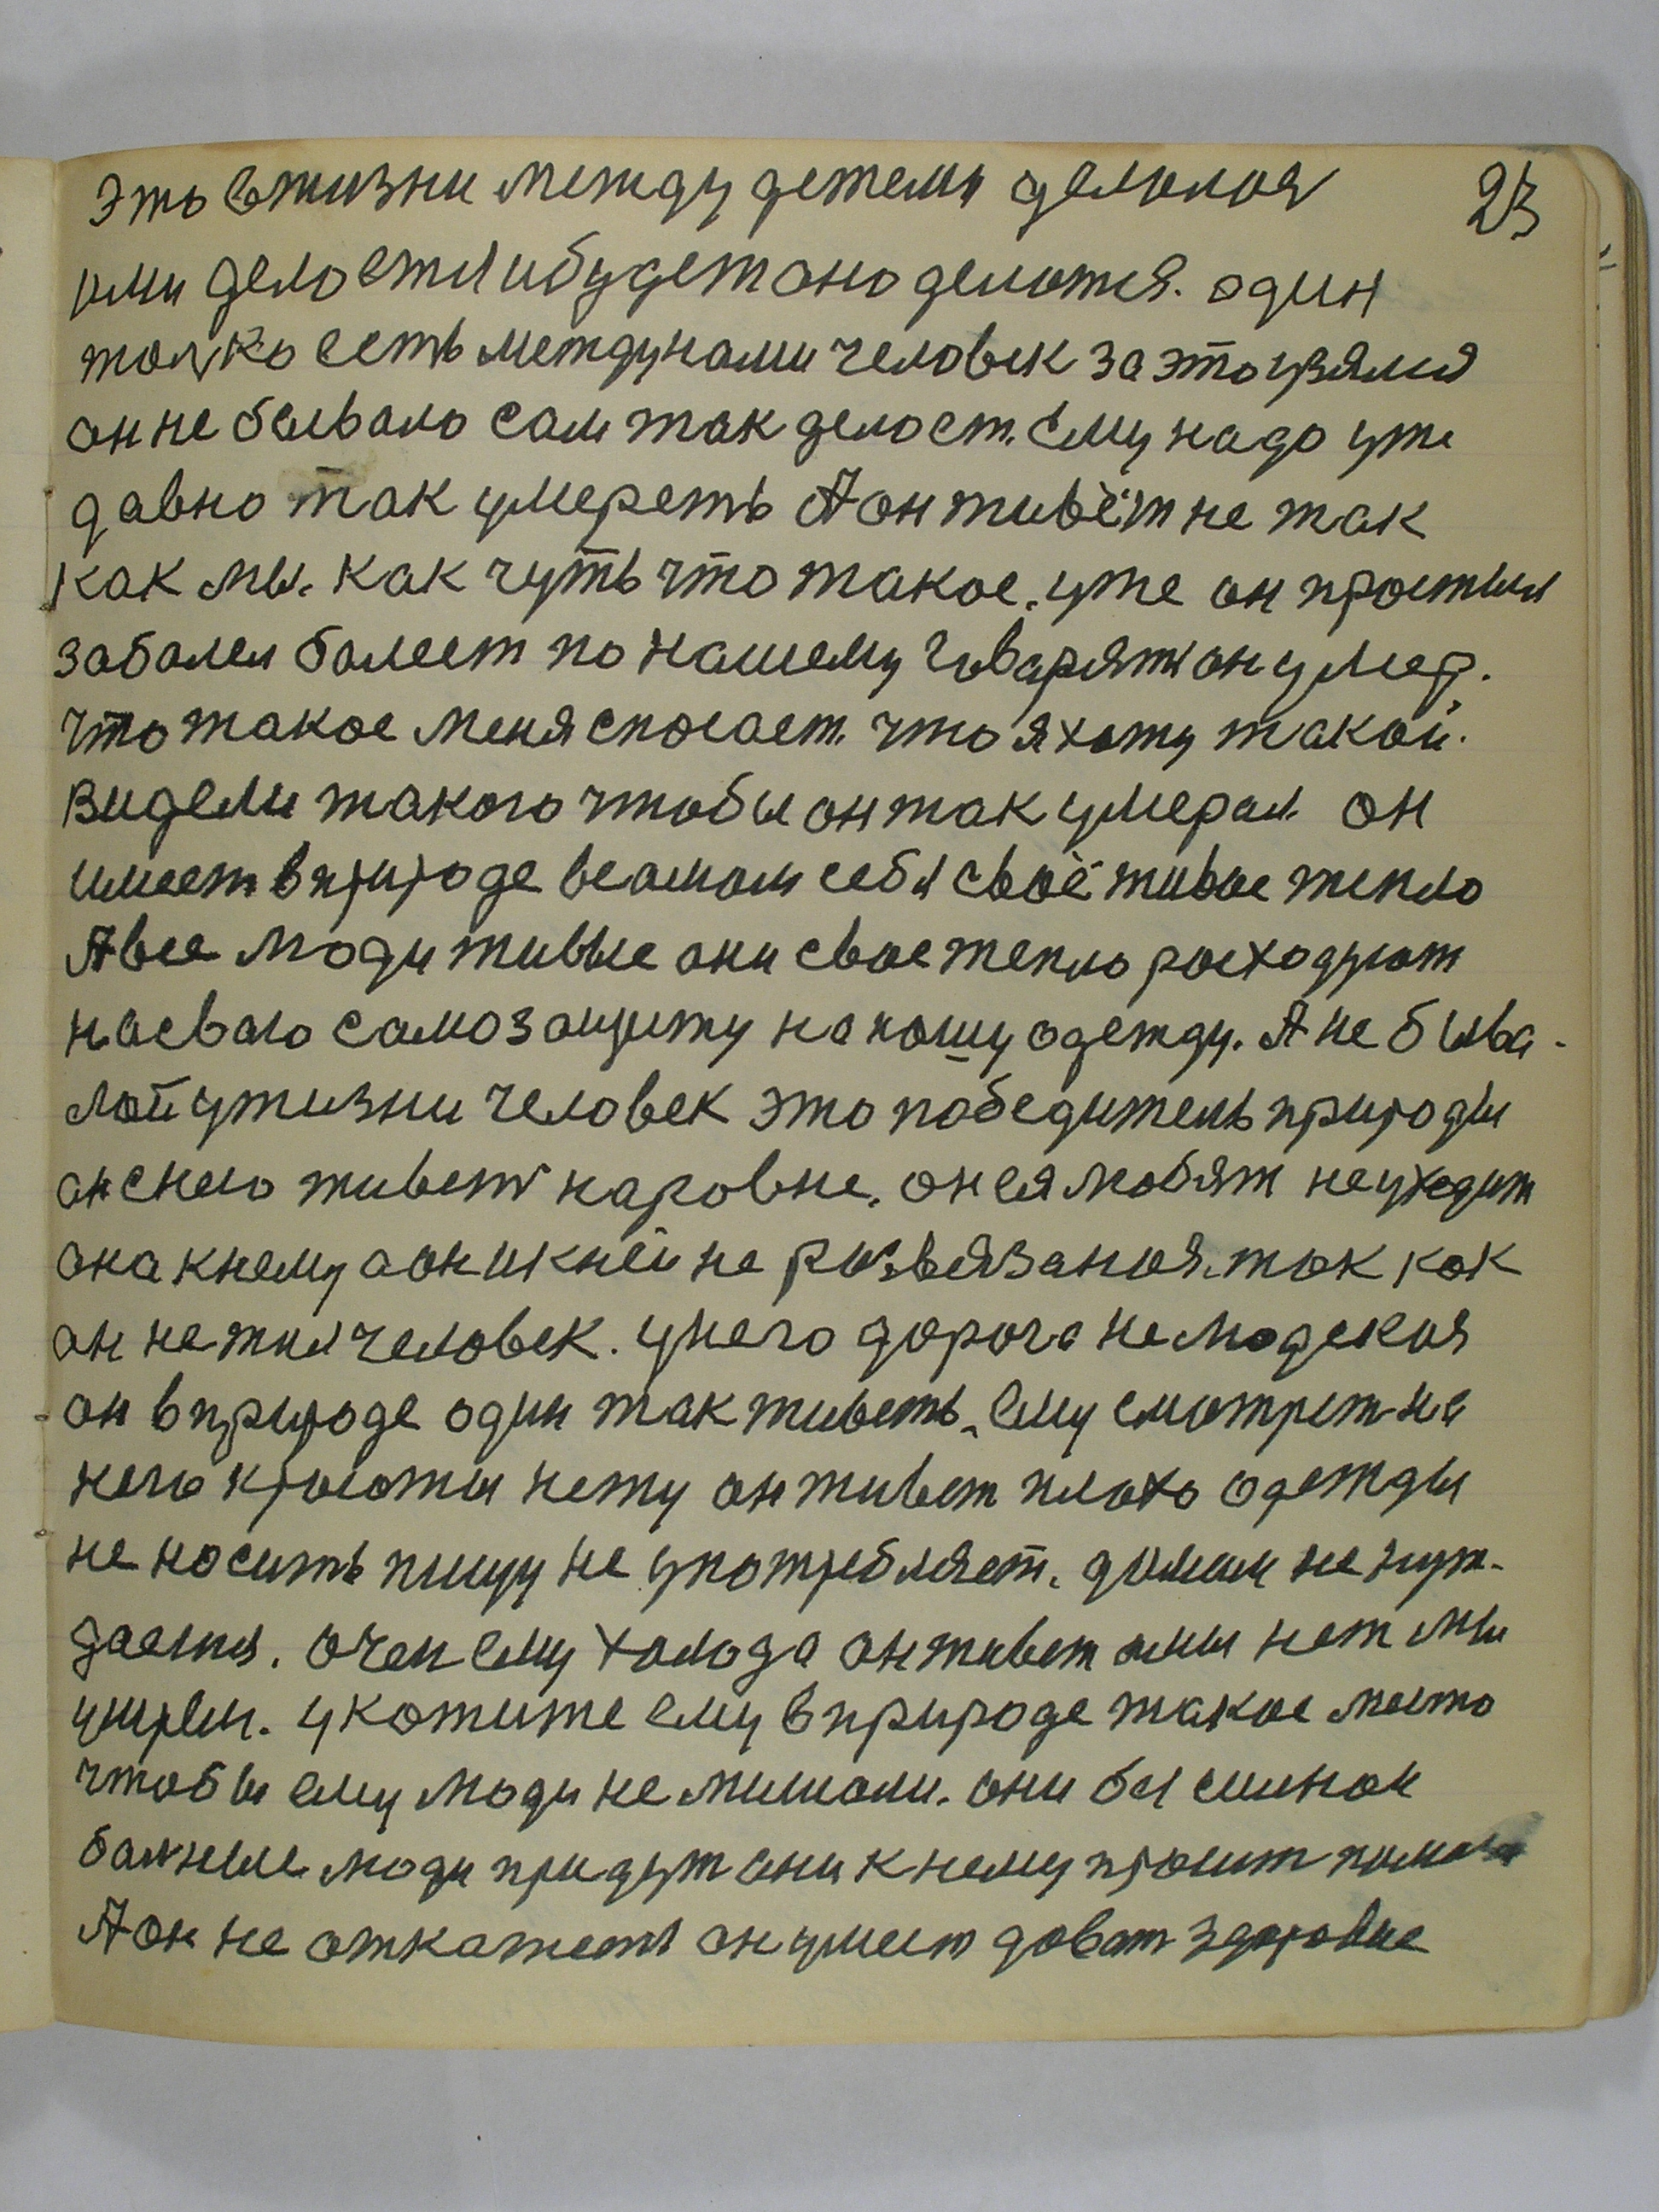 это в жизни между детеми делалоя 23
ими делается и будет оно делатся. один
толко есть между нами человек за это узялся
он не бывало сам так делает. ему надо уже
давно так умереть А он живёт не так
как мы. как чуть что такое. уже он простыл
заболел болеет по нашему гаварять он умер.
что такое меня спосает. что я хожу такой.
видели такого чтобы он так умерал он
имеет в природе в самом себя своё живое тепло
А все люди живые они свое тепло росходуют
на сваю самозащиту на нашу одежду. А не быва-
лой у жизни человек это победитель природы
он с нею живеть наровне. он ея любят не уходит
она к нему а он и к ней не развязаноя. так как
он не тил человек. у него дорога не людская
он в природе один так живеть. ему смотрет на
него красоты нету он живет плохо одежды
не носить пищу не употребляет. домом не нуж-
дается. очен ему холода он живет а мы нет мы
умрем. укажите ему в природе такое место
чтобы ему люди не мишали. они бы
люди придут они к нему просит
А он не откажеть он умеет доват здоровие